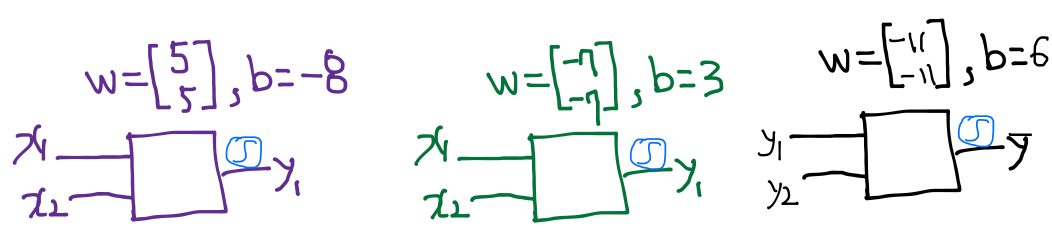 w = [5 5], b = -8
x1
x2
y1
w = [-7 -7], b = 3
x1
x2
y1
w = [-11 -11], b = 6
y1
y2
y̅